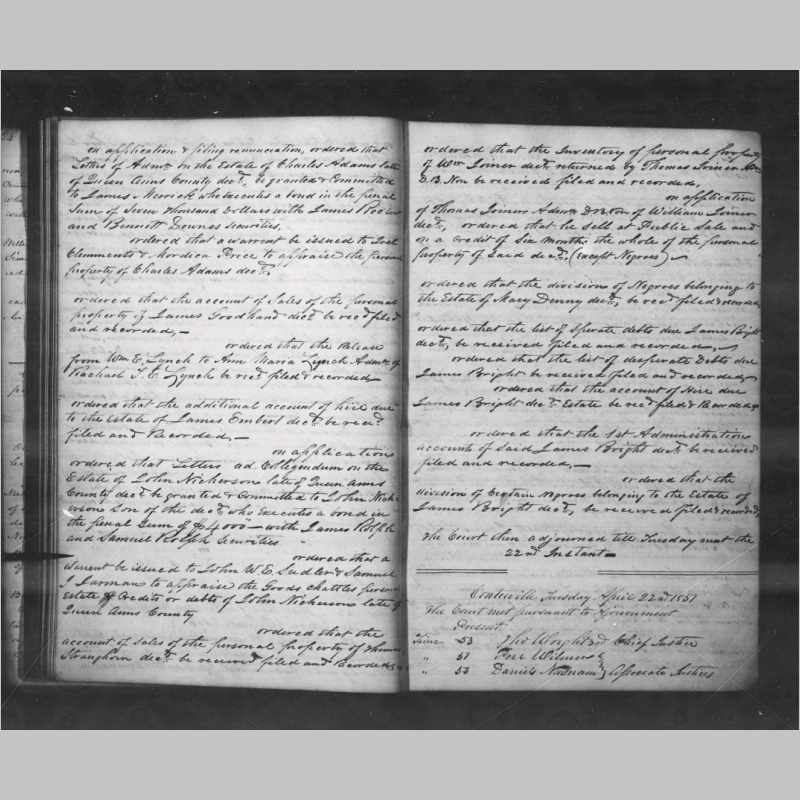 on application & filing renunciation, ordered that
Letters of Admn on the Estate of Charles Adams late
of Queen Anns County decd, be granted & Committed
to James Merrick who executes a bond in the final
Sum of Seven thousand dollars with James
and Bennett Downes securities.
ordered that a warrant be issued to
Clemments & Mordica Price to appraise the personal
property of Charles Adams decd,
ordered that the account of Sales of the personal
property of James Goodhand decd be recd filed
and recorded,
ordered that the Release
from Wm E. Lynch to Ann Maria Lynch Admx of
Rachael T. C. Lynch be recd filed & recorded
ordered that the additional account of hire due
to the Estate of James Embert decd be recd
filed and Recorded,
on application
ordered that Letters ad Collegendum on the
Estate of John Nickerson late of Queen anns
County decd be granted & Committed to John Nick-
erson Son of the decd who Executes a bond in
the final Sum of $4000 with James Rolph
and Samuel Rolph Securities
ordered that a
warrent be issued to John W. E. Sudler & Samuel
J. Jarman to appraise the Goods Chattles personal
Estate & Credits or debts of John Nickerson late of
Queen Anns County
ordered that the
account of Sales of the personal property of Thomas
Straughorn decd be received filed and Recorded
ordered that the Inventory of personal property
of Wm Joiner decd returned by Thomas Joiner Adm
D.B. Non be received filed and recorded,
on application
of Thomas Joiner Admr of William Joiner
decd, ordered that he sell at Public Sale and
on a Credit of Six months the whole of the personal
property of Said decd, (except Negroes)
ordered that the divisions of Negroes belonging to
the Estate of Mary Denny decd, be recd filed & recorded,
ordered that the list of Sperate debts due James Bright
decd, be received filed and recorded,
ordered that the list of desperate Debts due
James Bright be received filed and recorded,
ordered that the account of Hire due
James Bright decd Estate be recd filed & Recorded
ordered that the 1st Administration
accounts of Said James Bright decd be received
filed and recorded,
ordered that the
division of Certain Negroes belonging to the Estate of
James Bright decd, be received filed & recorded,
The Court then adjourned till Tuesday next the
22nd Instant
Centreville Tuesday April 22nd 1851
The Court met pursuant to adjournment
Present
53 Tho Wright 3d Chief Justice
" 51
" 53 Daniel Associate Justices